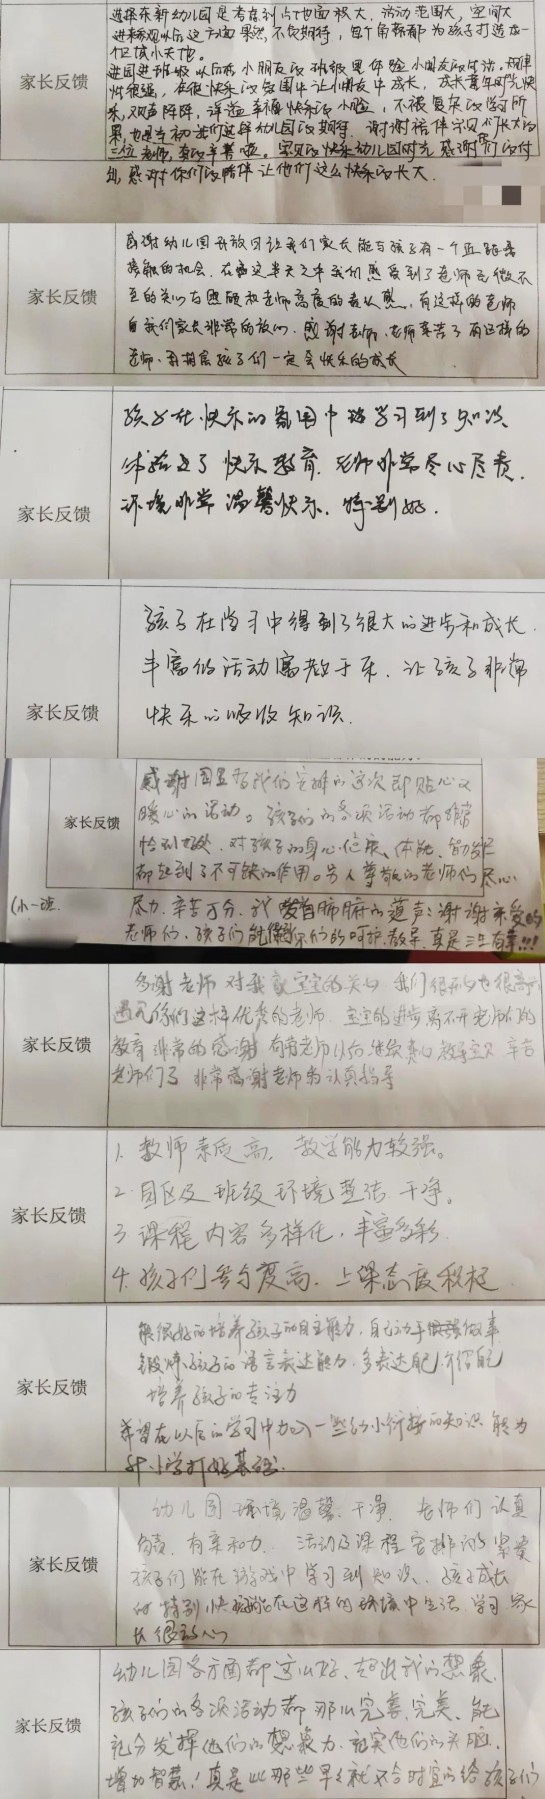 家长反馈
选择东新幼儿园是考虑到占地面积大,活动范围大,空间大
进来参观以后这方面果然不负期待,每个角落都为孩子打造成一
个区域小天地。
进园进班级以后在小朋友的班级里体验小朋友的生活,规律
性很强,在很快乐的氛围中让小朋友中成长,成长童年时光快
乐,欢声阵阵,洋溢幸福快乐的小脸,不被复杂的学习所
累,也是当初我们选择幼儿园的期待。谢谢陪伴宝贝们长大的
三位老师,教学辛苦啦。宝贝的快乐幼儿园时光感谢你们的付
出,感谢你们的陪伴让他们这么快乐的长大.
家长反馈
感谢幼儿园开放日让我们家长能与孩子有一个近距离
接触的机会,在这半天之中我们感受到了老师无微不
至的关心与照顾和老师高度的责任感,有这样的老师
自我们家长非常的放心.感谢老师,老师辛苦了有这样的
老师,我相信孩子们一定会快乐的成长
家长反馈
孩子在快乐的氛围中将学习到了知识
体验了快乐教育,老师非常尽心尽责,
环境非常温馨快乐,特别好.
家长反馈
孩子在学习中得到了很大的进步和成长.
丰富的活动寓教于乐,让孩子非常
快乐的吸收知识.
家长反馈
感谢园里为我们安排的这次即贴心又
暖心的活动。孩子们的各项活动都非常
恰到好处,对孩子的身心健康、体能、智力发展
都起到了不可缺的作用。另人尊敬的老师们尽心
(小一班
尽力.辛苦万分,我发自肺腑的道声:谢谢亲爱的
老师们,孩子们能得到你们的呵护教导,真是三生有幸!!!
家长反馈
多谢老师对我家宝宝的关心 我们很开心也很高兴
遇见你们这样优秀的老师.宝宝的进步离不开老师们的
教育 非常的感谢 有劳老师以后继续费心教导宝贝 辛苦
老师们了 非常感谢老师的认真指导
家长反馈
1.教师素质高,教学能力较强。
2.园区及班级环境整洁干净。
3.课程内容多样化,丰富多彩.
4.孩子们参与度高,上课态度积极
家长反馈
能很好的培养孩子的自主能力,自己动手做事
锻炼孩子的语言表达能力,多表达自己,介绍自己
培养孩子的专注力
希望在以后的学习中加入一些幼小衔接的知识 能为
升小学打好基础.
家长反馈
幼儿园环境温馨、干净,老师们认真
负责,有亲和力.活动及课程安排的紧凑
孩子们能在游戏中学习到知识,孩子成长
的特别快能在这样的环境中生活.学习.家
长很放心
家长反馈
幼儿园各方面都这么好,超出我的想象,
孩子们的各项活动都那么完善,完美,能
充分发挥他们的想象力,充实他们的头脑,
增加智慧!真是比那些早已就不合时宜的给孩子们